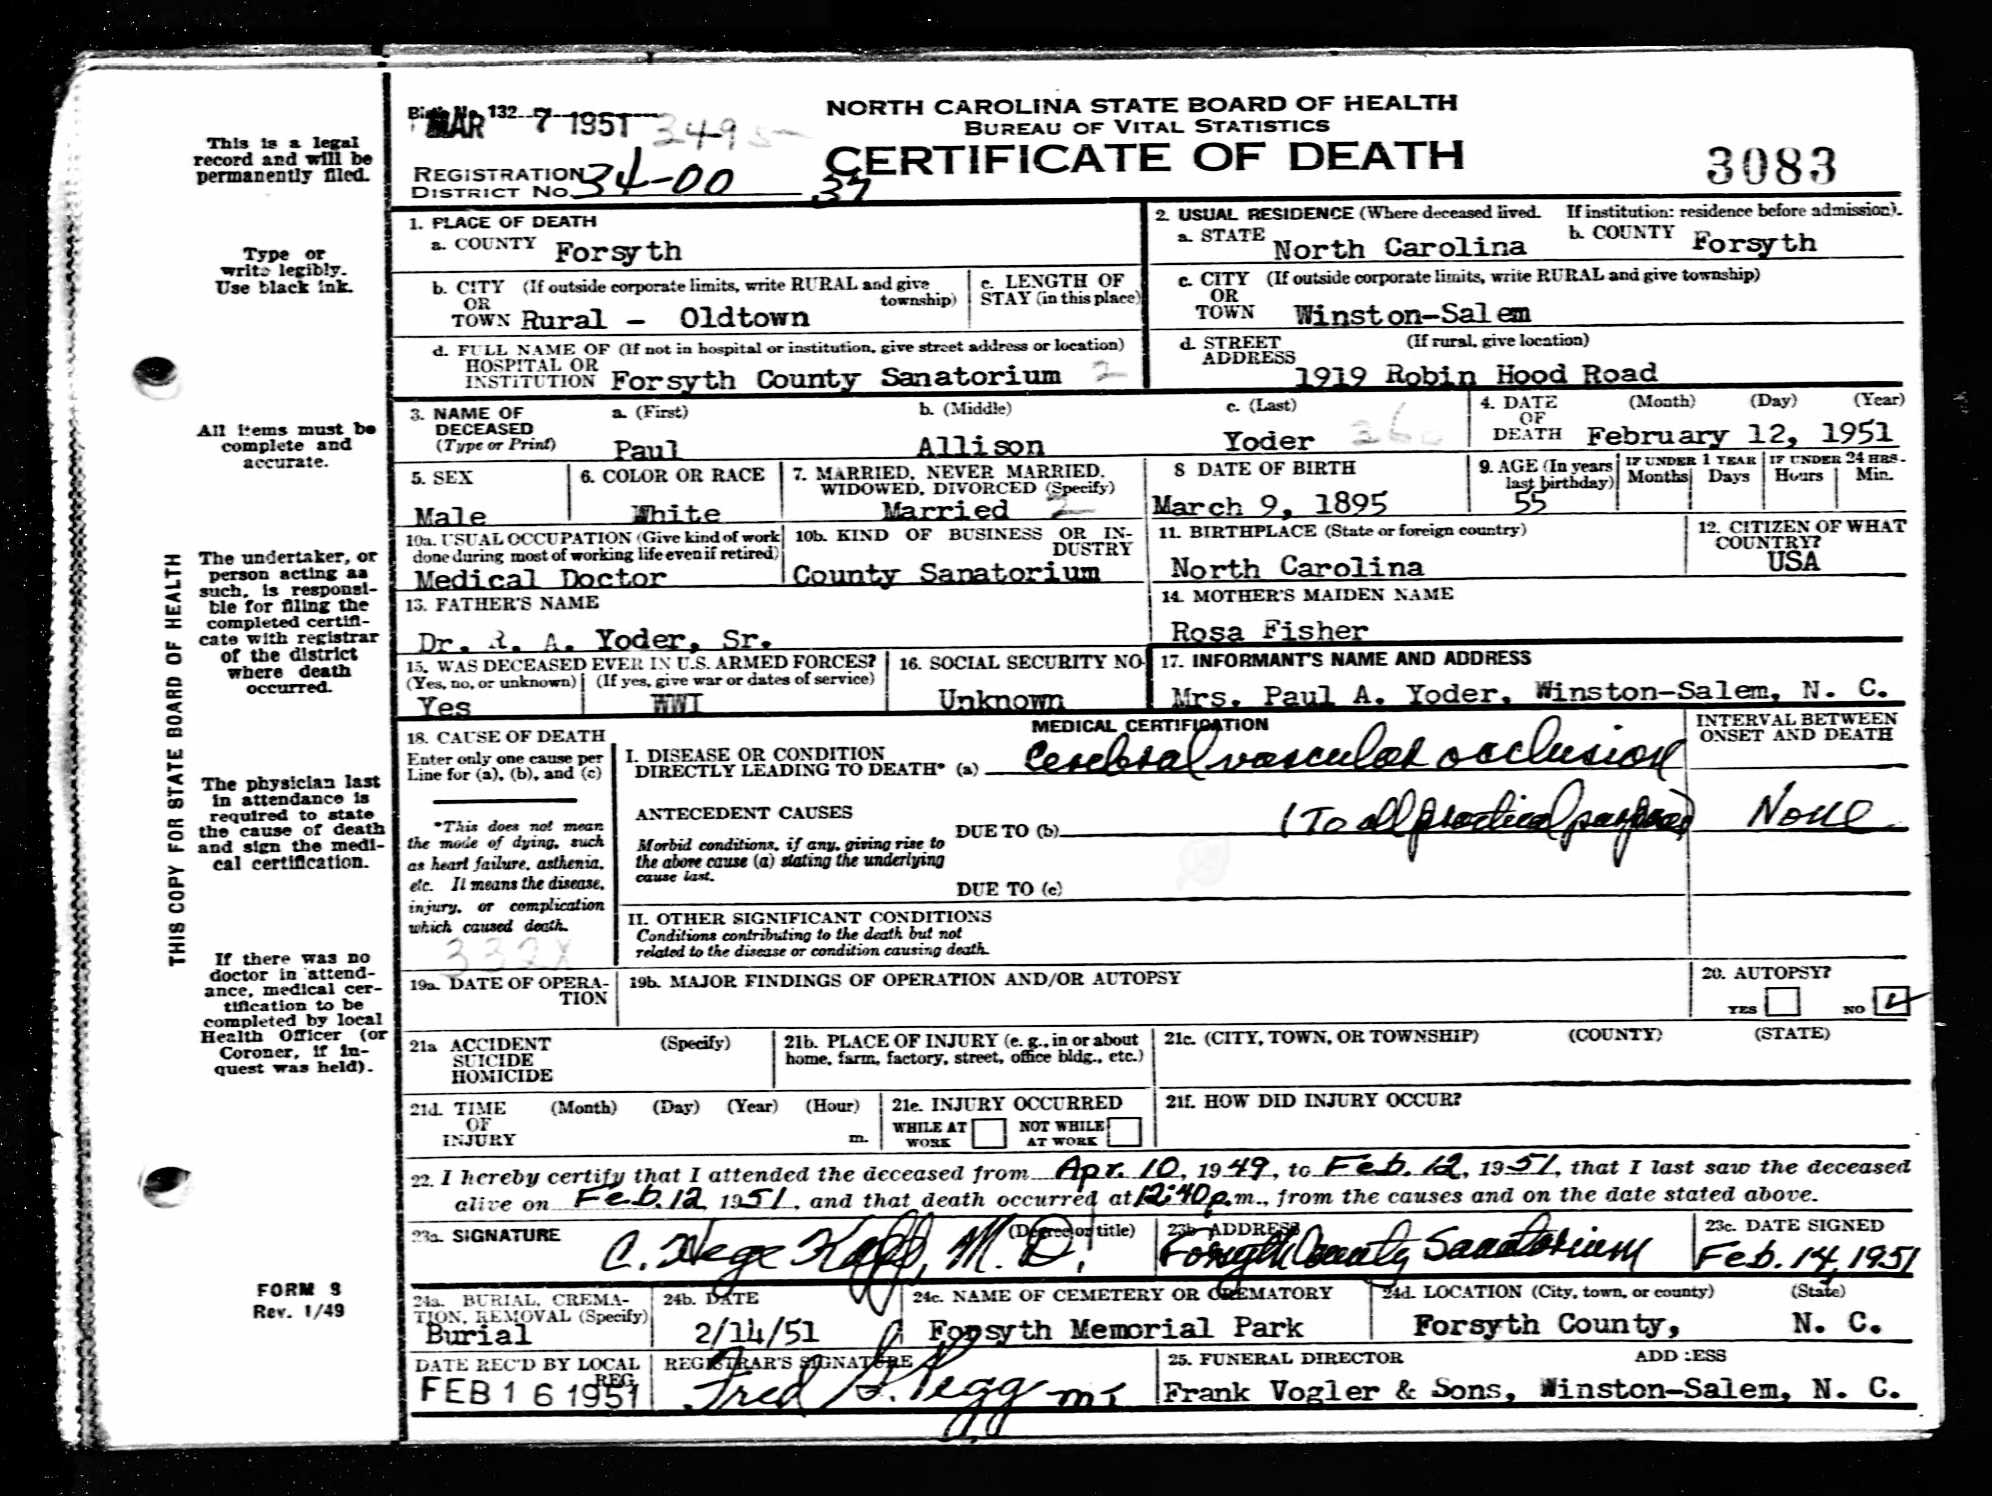 This is a legal
record and will be
permanently filed.
Type or
write legibly.
Use black ink.
All items must be
complete and
accurate.
The undertaker, or
person acting as
such, is responsi-
ble for filing the
completed certifi-
cate with registrar
of the district
where death
occurred.
The physician last
in attendance is
required to state
the cause of death
and sign the medi-
cal certification.
If there was no
doctor in attend-
ance, medical cer-
tification to be
completed by local
Health Officer (or
Coroner, if in-
quest was held).
FORM 9
Rev. 1/49
THIS COPY FOR STATE BOARD OF HEALTH
Birth No. 132
MAR 7 1951
NORTH CAROLINA STATE BOARD OF HEALTH
BUREAU OF VITAL STATISTICS
CERTIFICATE OF DEATH
3083
REGISTRATION
DISTRICT NO. 34-00 37
1. PLACE OF DEATH
a. COUNTY Forsyth
2. USUAL RESIDENCE (Where deceased lived. If institution: residence before admission).
a. STATE North Carolina b. COUNTY Forsyth
b. CITY (If outside corporate limits, write RURAL and give township)
OR
TOWN Rural - Oldtown
c. LENGTH OF
STAY (in this place)
c. CITY (If outside corporate limits, write RURAL and give township)
OR
TOWN Winston-Salem
d. FULL NAME OF (If not in hospital or institution, give street address or location)
HOSPITAL OR
INSTITUTION Forsyth County Sanatorium 2
d. STREET (If rural, give location)
ADDRESS
1919 Robin Hood Road
3. NAME OF DECEASED (Type or Print)
a. (First) b. (Middle) c. (Last)
Paul Allison Yoder
4. DATE OF DEATH (Month) (Day) (Year)
February 12, 1951
5. SEX
Male
6. COLOR OR RACE
White
7. MARRIED, NEVER MARRIED,
WIDOWED, DIVORCED (Specify)
Married 2
8 DATE OF BIRTH
March 9, 1895
9. AGE (In years
last birthday)
55
IF UNDER 1 YEAR
Months Days
IF UNDER 24 HRS.
Hours Min.
10a. USUAL OCCUPATION (Give kind of work
done during most of working life even if retired)
Medical Doctor
10b. KIND OF BUSINESS OR IN-
DUSTRY
County Sanatorium
11. BIRTHPLACE (State or foreign country)
North Carolina
12. CITIZEN OF WHAT
COUNTRY?
USA
13. FATHER'S NAME
Dr. R. A. Yoder, Sr.
14. MOTHER'S MAIDEN NAME
Rosa Fisher
15. WAS DECEASED EVER IN U.S. ARMED FORCES?
(Yes, no, or unknown) (If yes, give war or dates of service)
Yes WWI
16. SOCIAL SECURITY NO
Unknown
17. INFORMANT'S NAME AND ADDRESS
Mrs. Paul A. Yoder, Winston-Salem, N. C.
18. CAUSE OF DEATH
Enter only one cause per
Line for (a), (b), and (c)
*This does not mean
the mode of dying, such
as heart failure, asthenia,
etc. It means the disease,
injury, or complication
which caused death.
332X
MEDICAL CERTIFICATION
I. DISEASE OR CONDITION
DIRECTLY LEADING TO DEATH* (a) Cerebral vascular occlusion
INTERVAL BETWEEN
ONSET AND DEATH
ANTECEDENT CAUSES
DUE TO (b) (To all practical purposes) None
Morbid conditions, if any, giving rise to
the above cause (a) stating the underlying
cause last.
DUE TO (c)
II. OTHER SIGNIFICANT CONDITIONS
Conditions contributing to the death but not
related to the disease or condition causing death.
19a. DATE OF OPERA-
TION
19b. MAJOR FINDINGS OF OPERATION AND/OR AUTOPSY
20. AUTOPSY?
YES NO
21a ACCIDENT (Specify)
SUICIDE
HOMICIDE
21b. PLACE OF INJURY (e. g., in or about
home, farm, factory, street, office bldg., etc.)
21c. (CITY, TOWN, OR TOWNSHIP) (COUNTY) (STATE)
21d. TIME (Month) (Day) (Year) (Hour)
OF
INJURY m.
21e. INJURY OCCURRED
WHILE AT WORK NOT WHILE AT WORK
21f. HOW DID INJURY OCCUR?
22. I hereby certify that I attended the deceased from Apr. 10, 1949, to Feb. 12, 1951, that I last saw the deceased
alive on Feb. 12, 1951, and that death occurred at 12:40 p.m., from the causes and on the date stated above.
23a. SIGNATURE (Degree or title)
C. Hege Kapp, M.D.
23b. ADDRESS
Forsyth County Sanatorium
23c. DATE SIGNED
Feb. 14, 1951
24a. BURIAL, CREMA-
TION, REMOVAL (Specify)
Burial
24b. DATE
2/14/51
24c. NAME OF CEMETERY OR CREMATORY
Forsyth Memorial Park
24d. LOCATION (City, town, or county) (State)
Forsyth County, N. C.
DATE REC'D BY LOCAL
REG.
FEB 16 1951
REGISTRAR'S SIGNATURE
Fred G. Pegg
25. FUNERAL DIRECTOR ADDRESS
Frank Vogler & Sons, Winston-Salem, N. C.